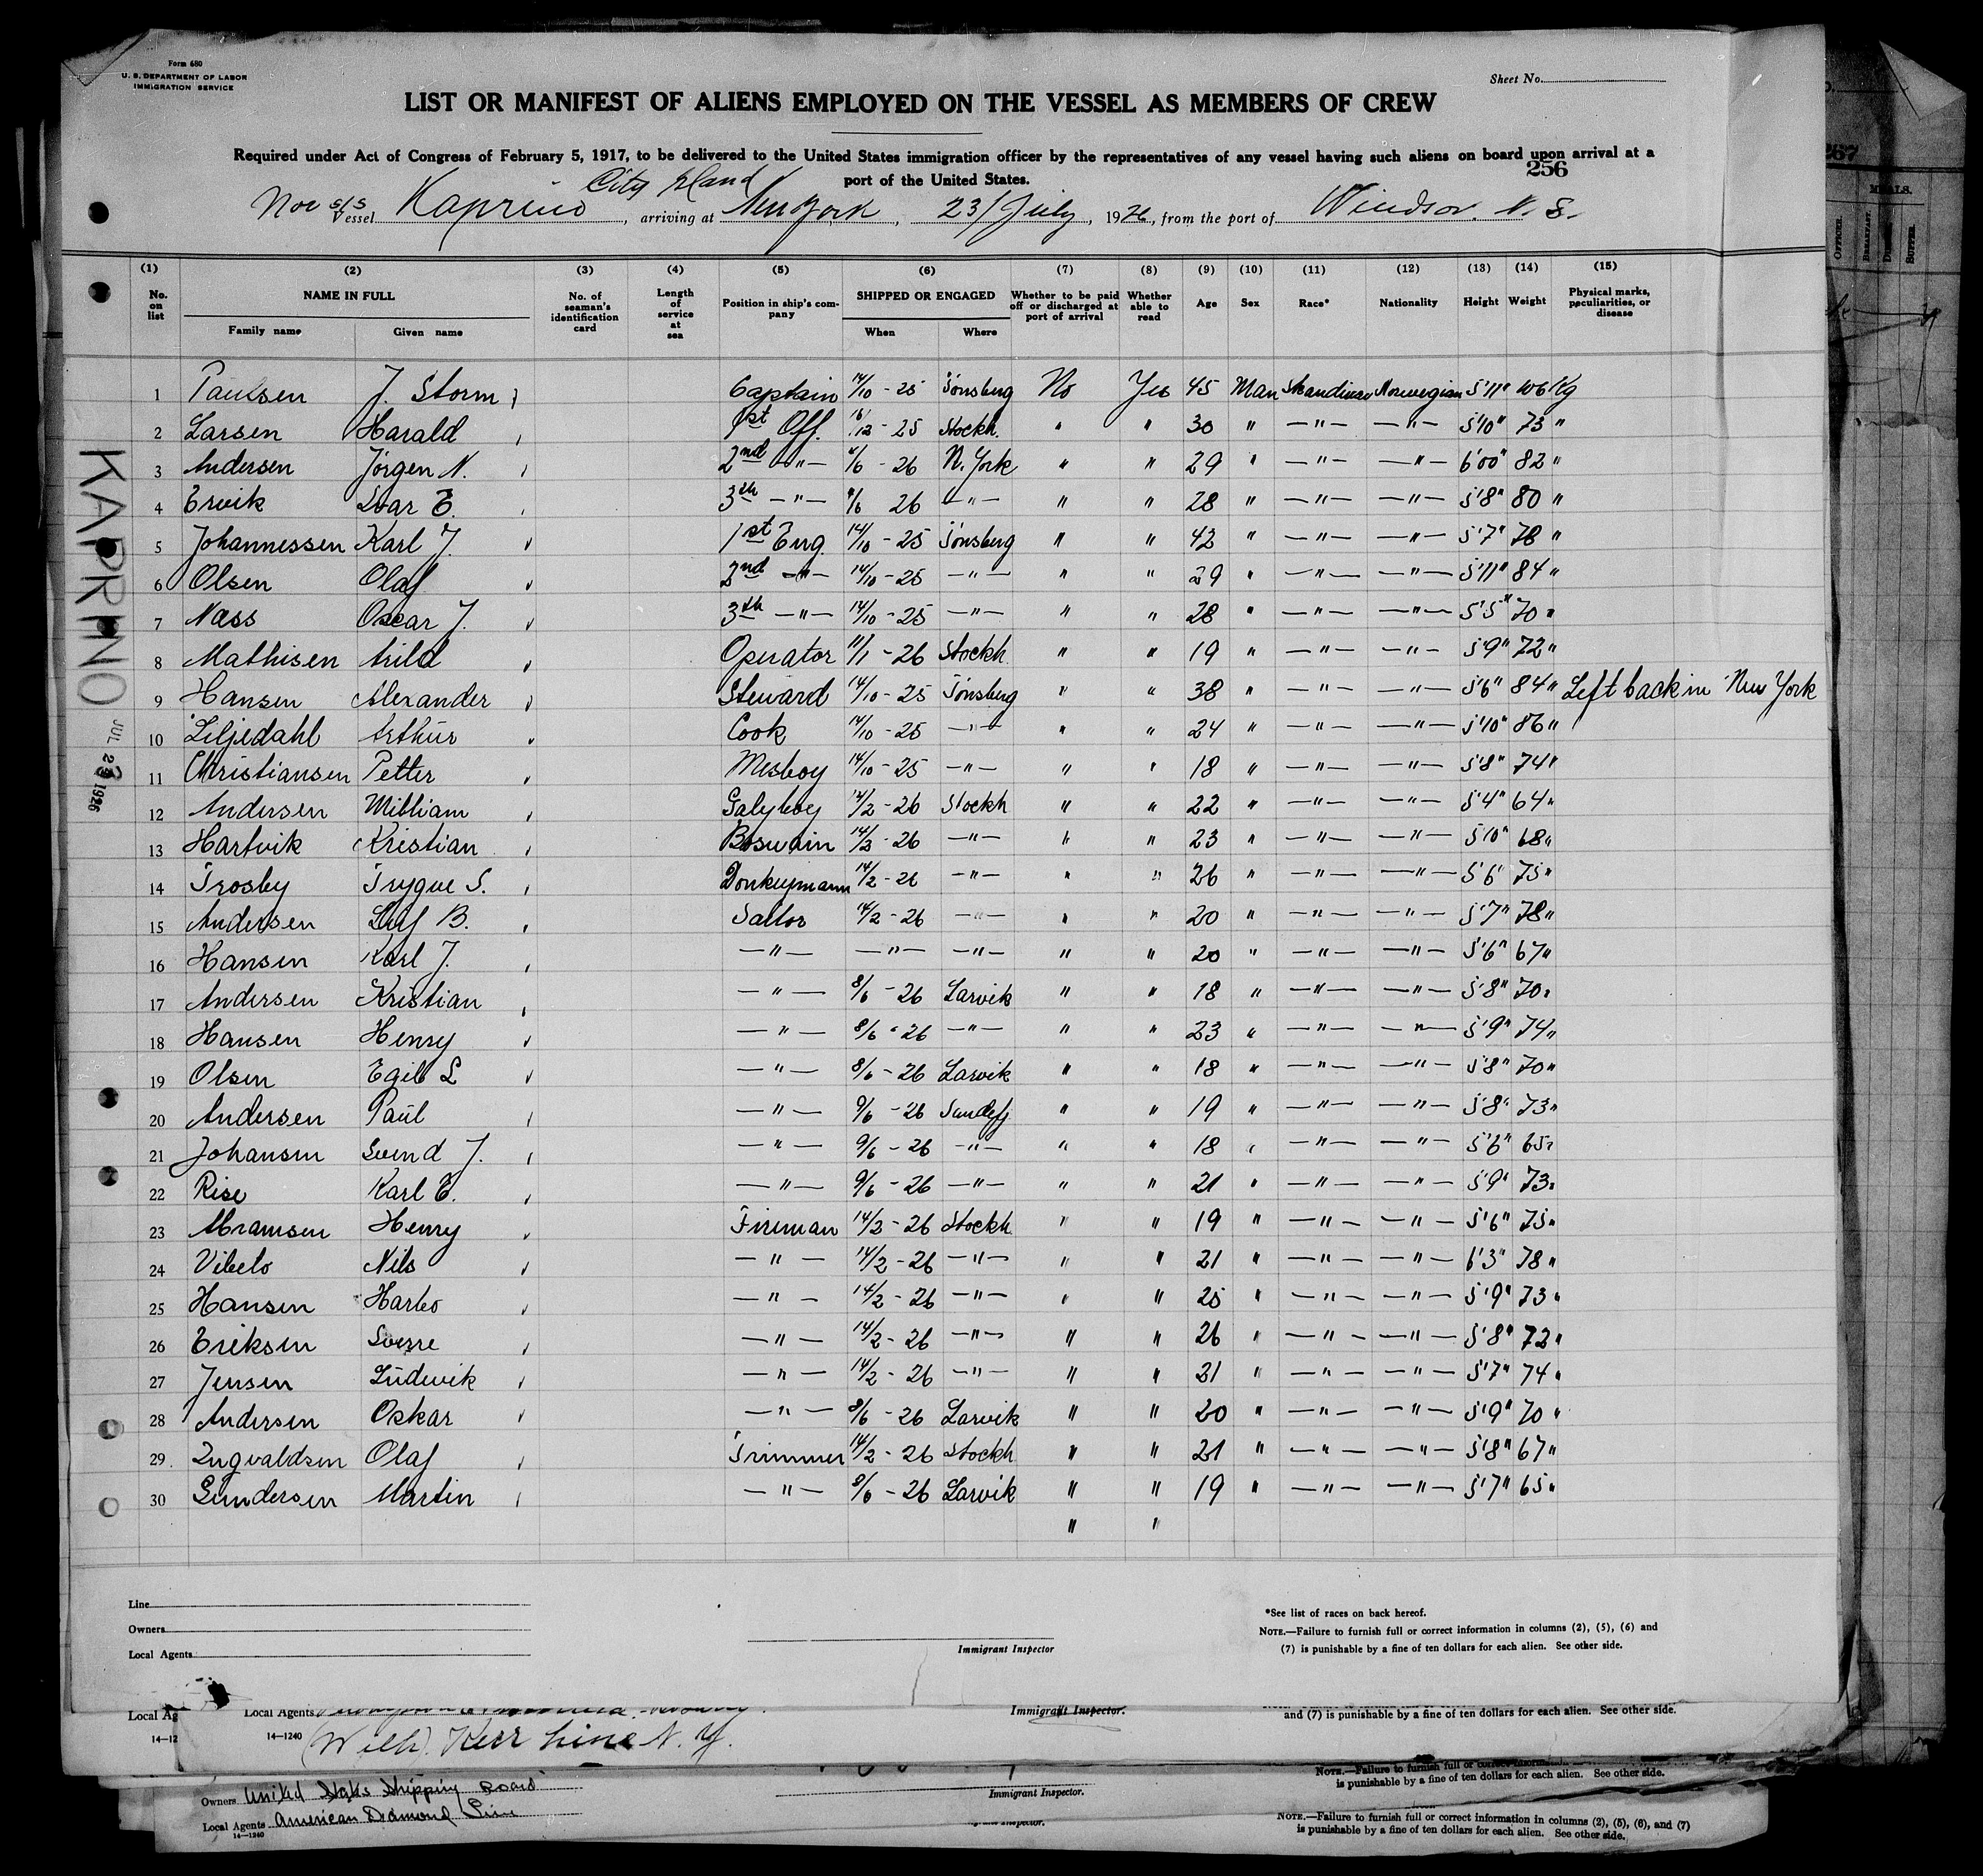 Form 680
U. S. DEPARTMENT OF LABOR
IMMIGRATION SERVICE
Sheet No.
LIST OR MANIFEST OF ALIENS EMPLOYED ON THE VESSEL AS MEMBERS OF CREW
Required under Act of Congress of February 5, 1917, to be delivered to the United States immigration officer by the representatives of any vessel having such aliens on board upon arrival at a
port of the United States.
256
City Island
Nor s/s Vessel Kaprino, arriving at New York, 23/July, 1926, from the port of Windsor. N. S.
(1) (2) (3) (4) (5) (6) (7) (8) (9) (10) (11) (12) (13) (14) (15)
No. on list NAME IN FULL Family name Given name No. of seaman's identification card Length of service at sea Position in ship's company SHIPPED OR ENGAGED When Where Whether to be paid off or discharged at port of arrival Whether able to read Age Sex Race* Nationality Height Weight Physical marks, peculiarities, or disease
1 Paulsen J. Storm Captain 14/10 - 25 Tönsberg No Yes 45 Man Skandinav Norwegian 5'11" 106 Kg
2 Larsen Harald 1st Off. - 25 Stockh. " " 30 " —"— —"— 5'10" 73 "
3 Andersen Jörgen N. 2nd —"— /6 - 26 N. York " " 29 " —"— —"— 6'00" 82 "
4 Ervik Ivar E. 3th —"— /6 26 —"— " " 28 " —"— —"— 5'8" 80 "
5 Johannessen Karl J. 1st Eng. 14/10 - 25 Tönsberg " " 42 " —"— —"— 5'7" 78 "
6 Olsen Olaf 2nd —"— 14/10 - 25 —"— " " 29 " —"— —"— 5'11" 84 "
7 Næss Oscar J. 3th —"— 14/10 - 25 —"— " " 28 " —"— —"— 5'5" 70 "
8 Mathisen Arild Operator 11/1 - 26 Stockh. " " 19 " —"— —"— 5'9" 72 "
9 Hansen Alexander Steward 14/10 - 25 Tönsberg " " 38 " —"— —"— 5'6" 84 " Left back in New York
10 Liljedahl Arthur Cook 14/10 - 25 —"— " " 24 " —"— —"— 5'10" 86 "
11 Christiansen Petter Mesboy 14/10 - 25 —"— " " 18 " —"— —"— 5'8" 74 "
12 Andersen William Galyboy 14/2 - 26 Stockh " " 22 " —"— —"— 5'4" 64 "
13 Hartvik Kristian Boswain 14/2 - 26 —"— " " 23 " —"— —"— 5'10" 68 "
14 Trosby Trygve S. Donkeymann 14/2 - 26 —"— " " 26 " —"— —"— 5'6" 75 "
15 Andersen Leif B. Sailor 14/2 - 26 —"— " " 20 " —"— —"— 5'7" 78 "
16 Hansen Karl J. —"— —"— —"— " " 20 " —"— —"— 5'6" 67 "
17 Andersen Kristian —"— 8/6 - 26 Larvik " " 18 " —"— —"— 5'8" 70 "
18 Hansen Henry —"— 8/6 - 26 —"— " " 23 " —"— —"— 5'9" 74 "
19 Olsen Egil L —"— 8/6 - 26 Larvik " " 18 " —"— —"— 5'8" 70 "
20 Andersen Paul —"— 9/6 - 26 Sandefj " " 19 " —"— —"— 5'8" 73 "
21 Johansen Svend J. —"— 9/6 - 26 —"— " " 18 " —"— —"— 5'6" 65 "
22 Rise Karl E. —"— 9/6 - 26 —"— " " 21 " —"— —"— 5'9" 73 "
23 Abramsen Henry Fireman 14/2 - 26 Stockh " " 19 " —"— —"— 5'6" 75 "
24 Vibeto Nils —"— 14/2 - 26 —"— " " 21 " —"— —"— 6'3" 78 "
25 Hansen —"— 14/2 - 26 —"— " " 25 " —"— —"— 5'9" 73 "
26 Eriksen Sverre —"— 14/2 - 26 —"— " " 26 " —"— —"— 5'8" 72 "
27 Jensen Ludevik —"— 14/2 - 26 —"— " " 21 " —"— —"— 5'7" 74 "
28 Andersen Oskar —"— 8/6 - 26 Larvik " " 20 " —"— —"— 5'9" 70 "
29 Ingvaldsen Olaf Trimmer 14/2 - 26 Stockh " " 21 " —"— —"— 5'8" 67 "
30 Gundersen Martin —"— 8/6 - 26 Larvik " " 19 " —"— —"— 5'7" 65 "
" "
KAPRINO
JUL 23 1926
Line
Owners
Local Agents
Immigrant Inspector
*See list of races on back hereof.
NOTE.—Failure to furnish full or correct information in columns (2), (5), (6) and
(7) is punishable by a fine of ten dollars for each alien. See other side.
Local Ag
14—12
Local Agents
14—1240
(Wilh). Kerr Line N. Y.
Immigrant Inspector.
and (7) is punishable by a fine of ten dollars for each alien. See other side.
Owners United States Shipping Board
Immigrant Inspector.
NOTE.—Failure to furnish full or correct
is punishable by a fine of ten dollars for each alien. See other side.
Local Agents American Diamond Line
14—1240
NOTE.—Failure to furnish full or correct information in columns (2), (5), (6), and (7)
is punishable by a fine of ten dollars for each alien. See other side.
267
MEALS.
OFFICER.
BREAKFAST.
SUPPER.